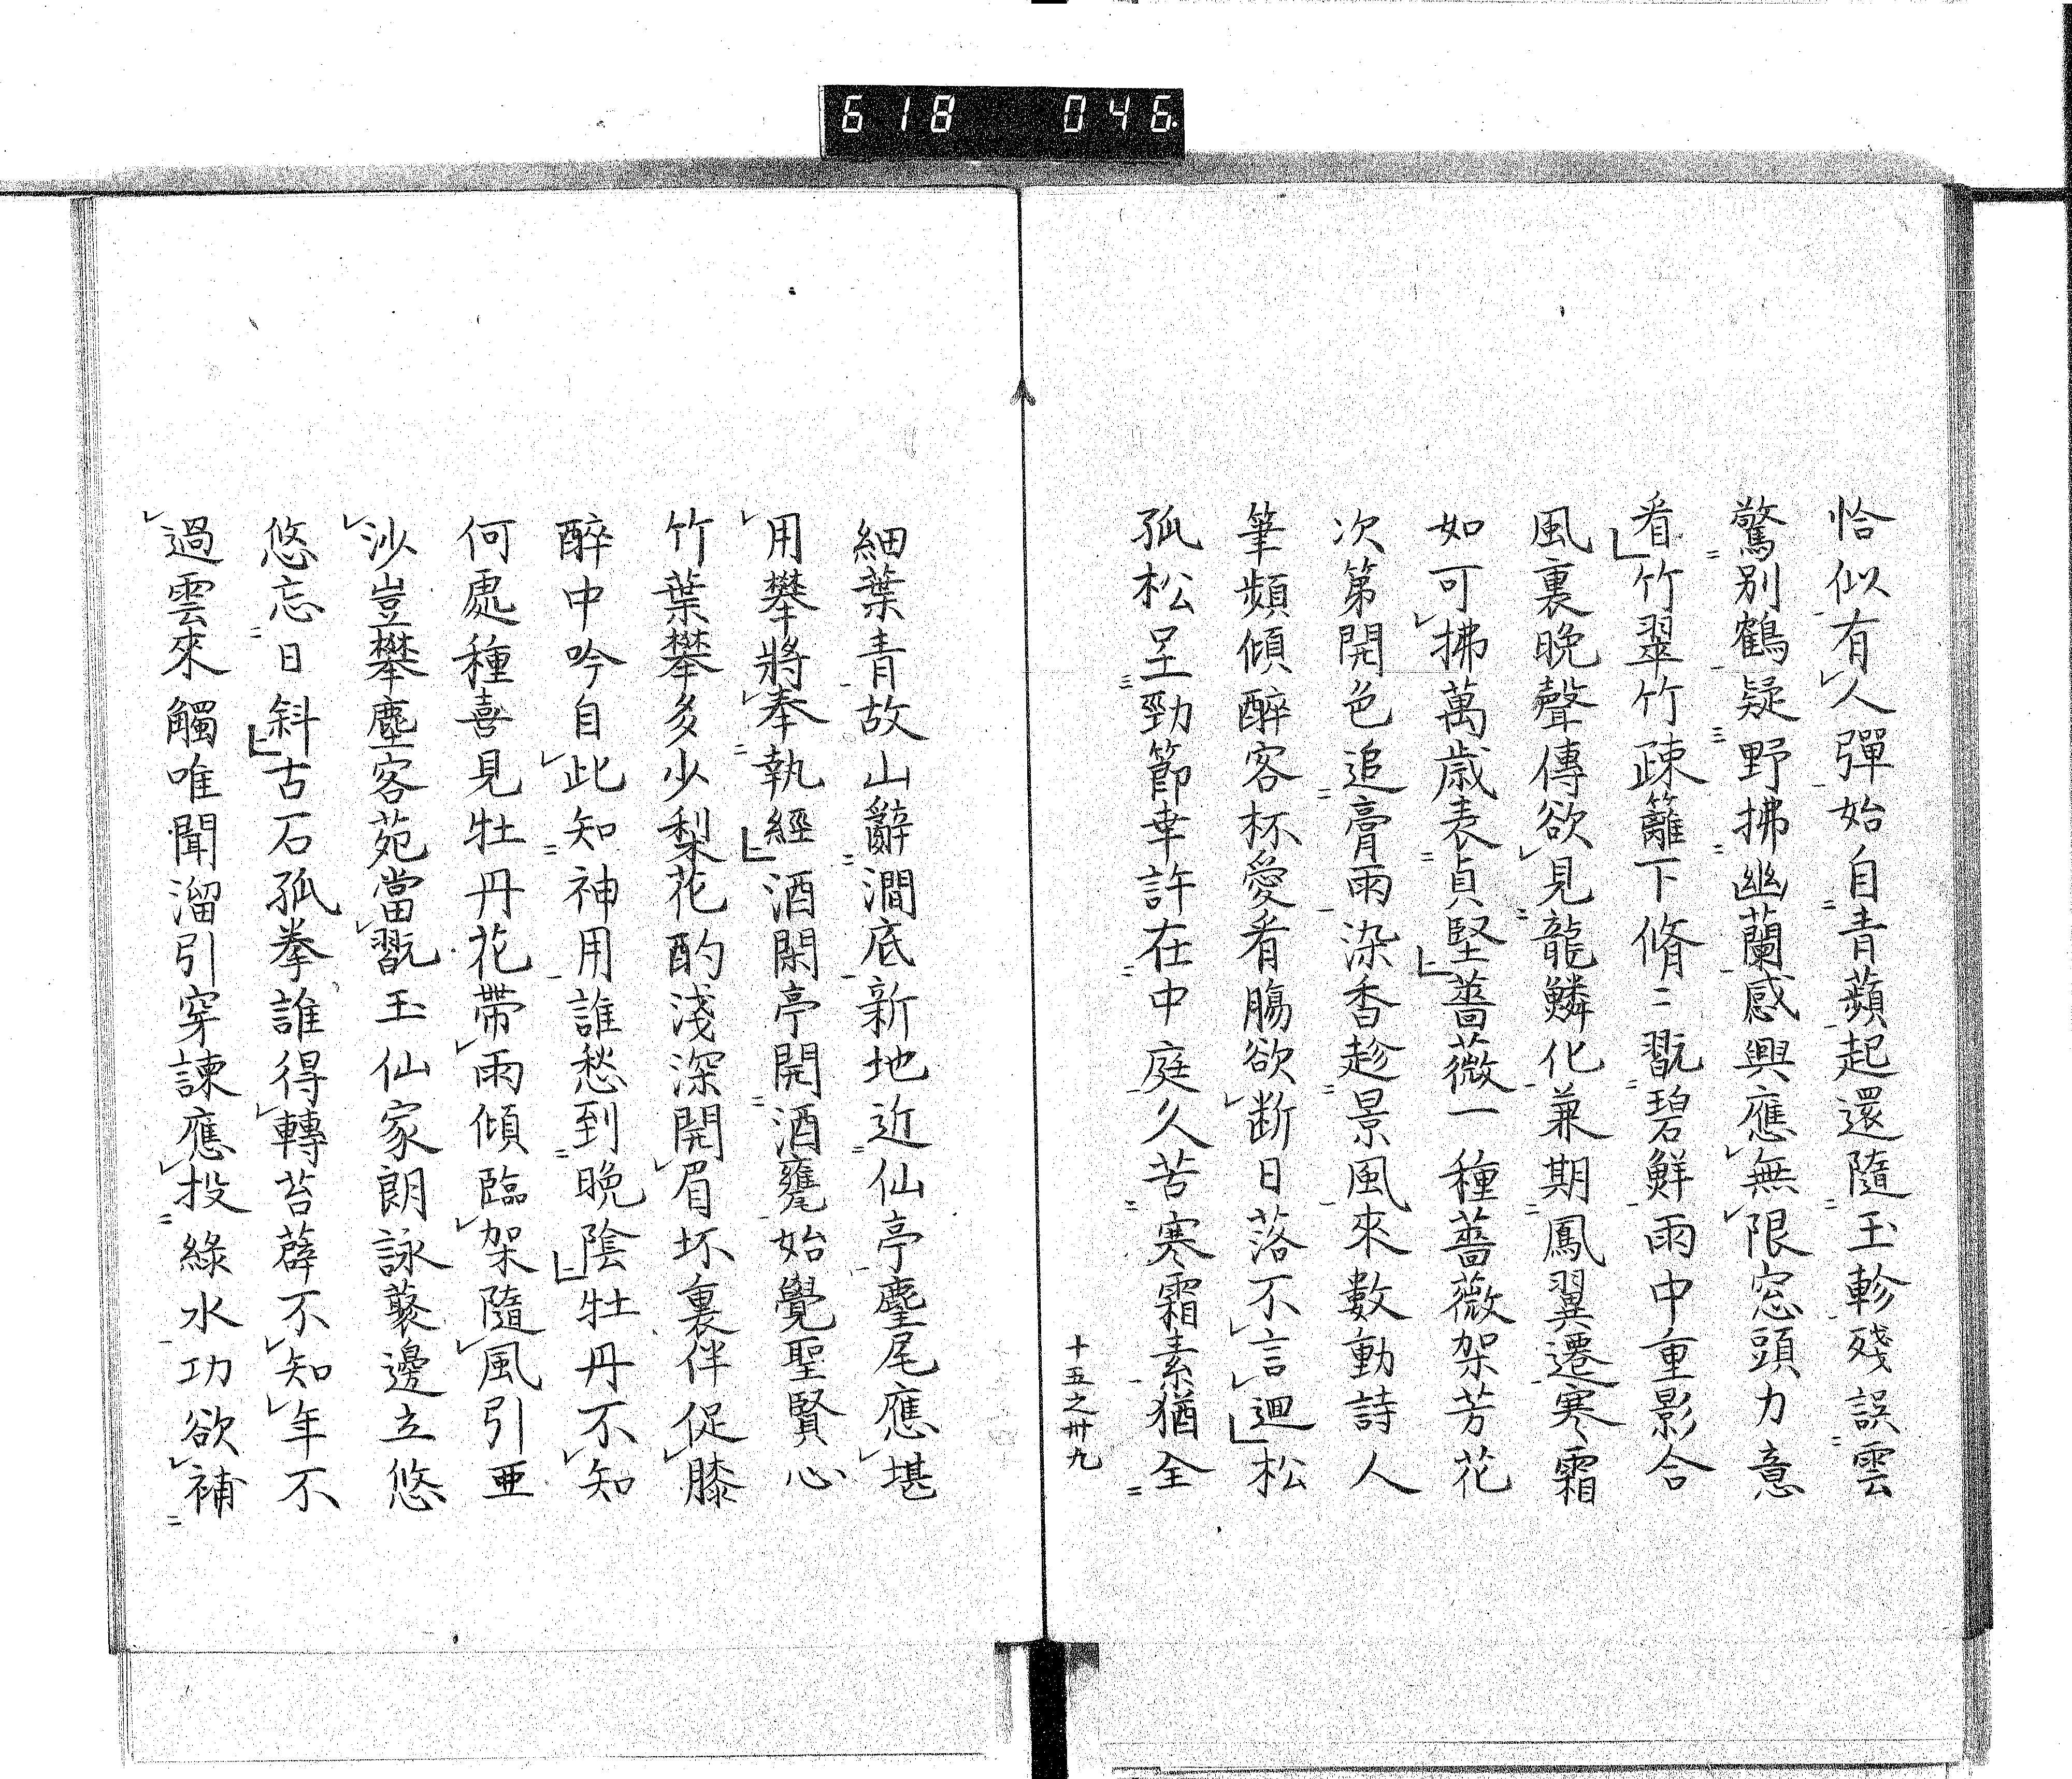 618 046
恰似有人彈始自青蘋起還隨玉軫殘誤雲
驚別鶴疑野拂幽蘭感興應無限窓頭力意
看竹翠竹疎籬下脩〻翫碧鮮雨中重影合
風裏晩聲傳欲見龍鱗化兼期鳳翼遷寒霜
如可拂萬歲表貞堅薔薇一種薔薇架芳花
次第開色追膏雨染香趁景風來數動詩人
筆頻傾醉客杯愛看腸欲断日落不言迴松
孤松呈勁節幸許在中庭久苦寒霜素猶全
十五之卅九
細葉青故山辭澗底新地近仙亭麈尾應堪
用攀將奉執經酒閑亭開酒甕始覺聖賢心
竹葉攀多少梨花酌淺深開眉坏裏伴促膝
醉中吟自此知神用誰愁到晩陰牡丹不知
何處種喜見牡丹花帶雨傾臨架隨風引亜
沙豈攀塵客苑當翫玉仙家朗詠叢邊立悠
悠忘日斜古石孤拳誰得轉苔薜不知年不
過雲來觸唯聞溜引穿諫應投綠水功欲補